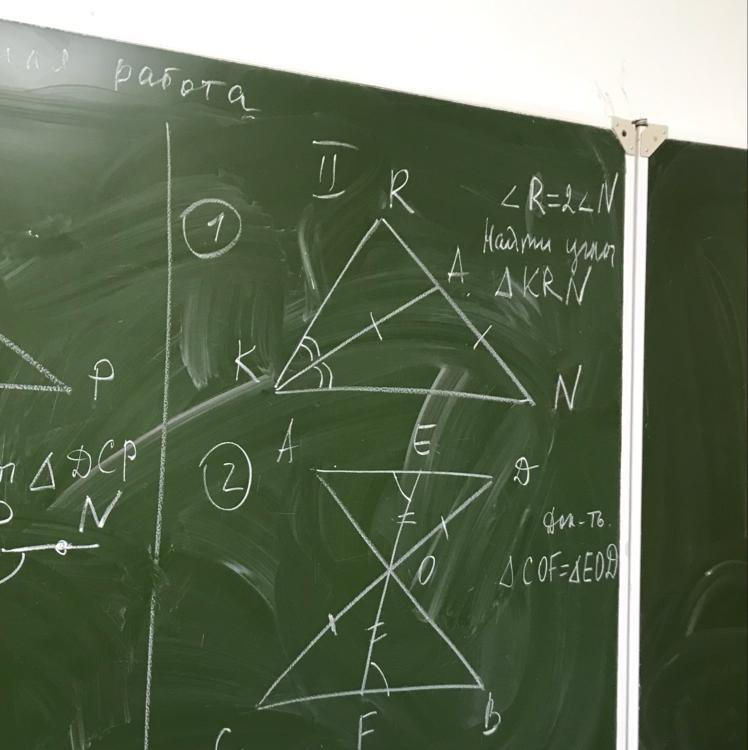 работа
II
1
R
∠R=2∠N
Найти углы
△KRN
A
K
N
P
△DCP
N
2
A
E
D
Док-ть.
△COF=△EOD
O
C
F
B